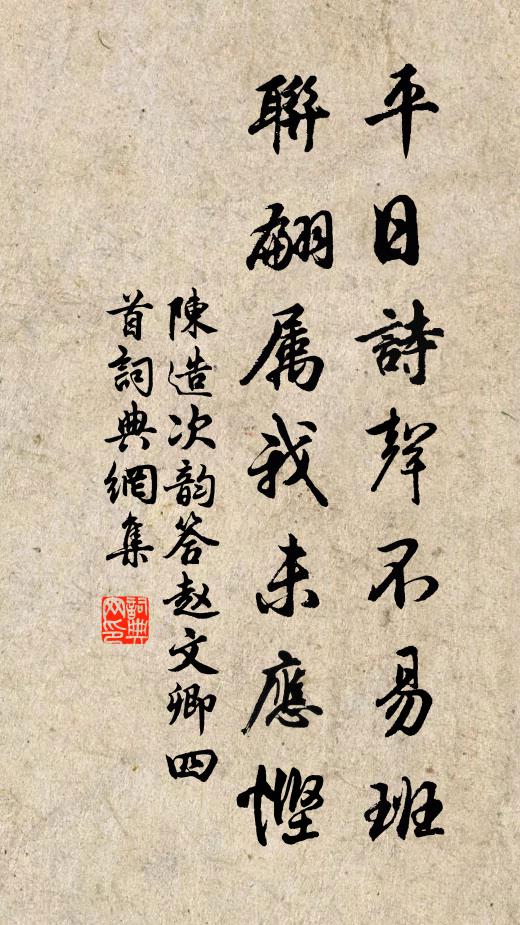 平日詩聲不易班
聯翩属我未應慳
陳造次韵答赵文卿四
首詞典網集
詞典
网印